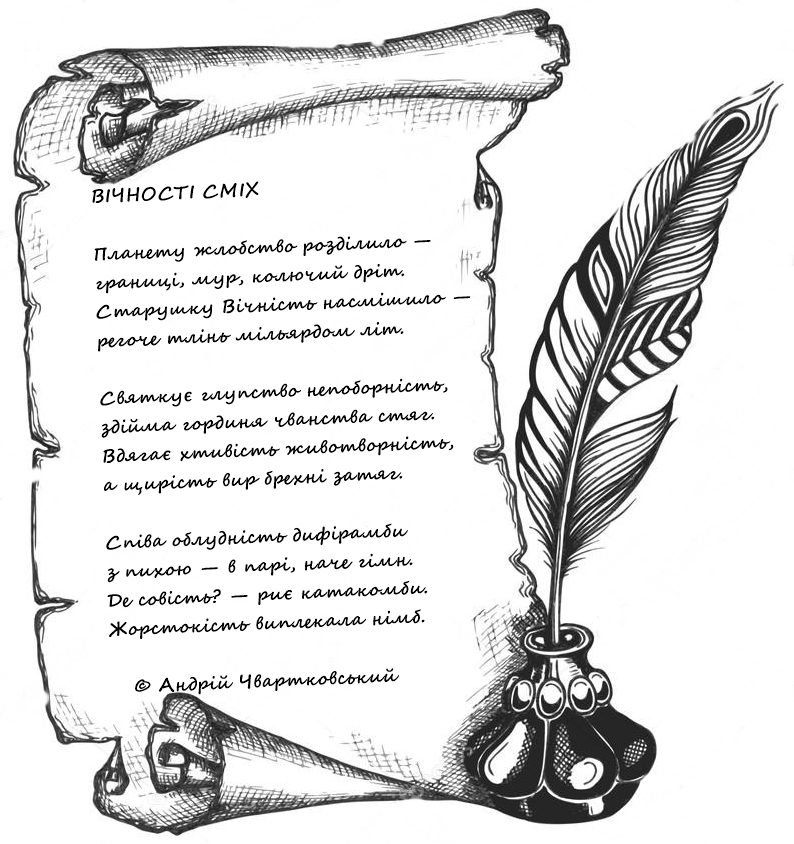 ВІЧНОСТІ СМІХ
Планету жлобство розділило —
границі, мур, колючий дріт.
Старушку Вічність насмішило —
регоче тлінь мільярдом літ.
Святкує глупство непоборність,
здійма гординя чванства стяг.
Вдягає хтивість животворність,
а щирість вир брехні затяг.
Співа облудність дифірамби
з пихою — в парі, наче гімн.
Де совість? — риє катакомби.
Жорстокість виплекала німб.
© Андрій Чвартковський